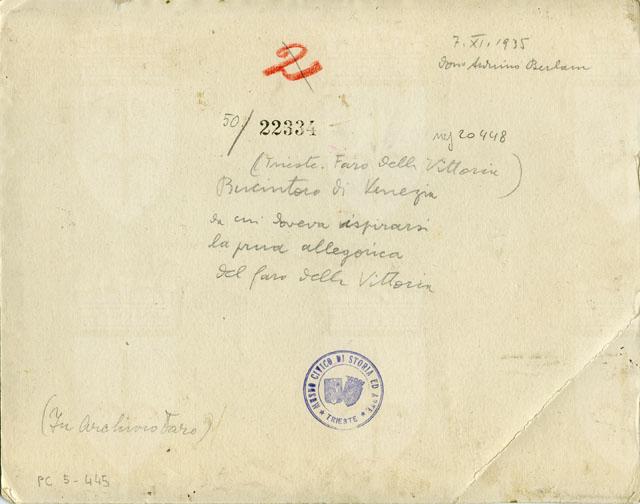 7. XI. 1935
dono Arduino Berlam
2
50/ 22334
neg 20448
(Trieste. Faro della Vittoria)
Bucintoro di Venezia
da cui doveva ispirarsi
la prua allegorica
del faro della Vittoria
MUSEO CIVICO DI STORIA ED ARTE
* TRIESTE *
(In Archivio Faro)
PC 5-445